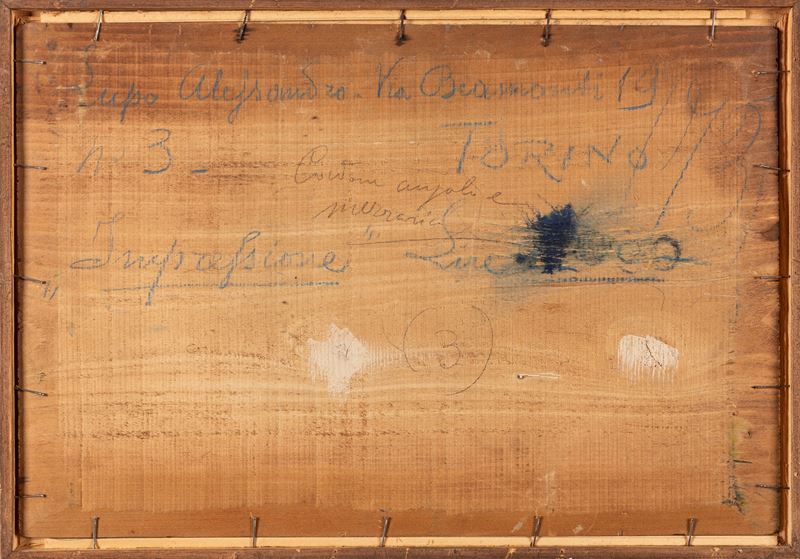 Lupo Alessandro - Via Bramanti 19
N° 3 - TORINO
Cordone angolo e
" Impressione Lire
3